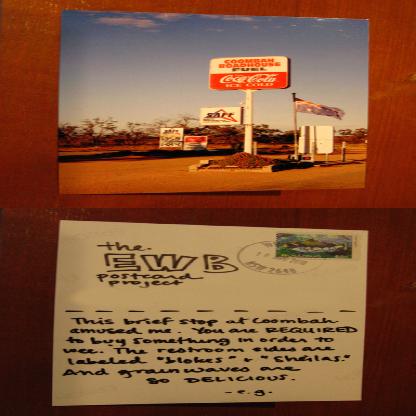 COOMBAH
ROADHOUSE
FUEL
Coca-Cola
ICE COLD
the
EWB
postcard
project
This brief stop at Coombah
amused me. You are REQUIRED
to buy something in order to
wee. The restroom sides are
labeled "blokes" & "Sheilas."
And grainwaves are
SO DELICIOUS.
- e.g.